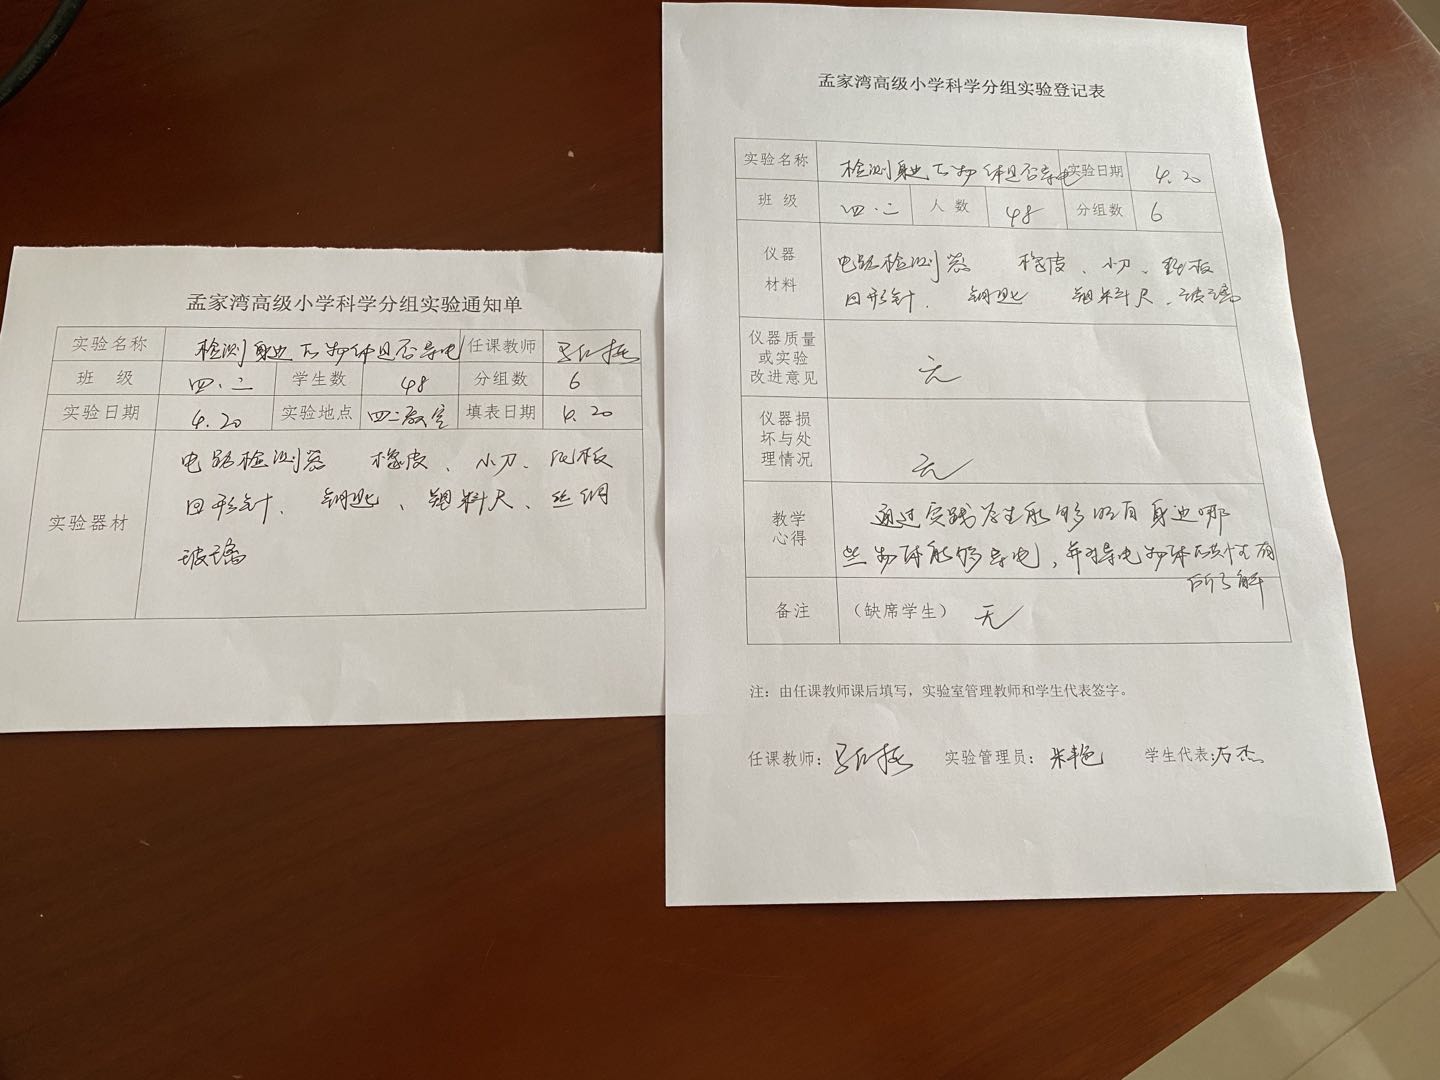 孟家湾高级小学科学分组实验通知单
实验名称 检测身边的物体是否导电 任课教师
班 级 四.二 学生数 48 分组数 6
实验日期 4.20 实验地点 四二教室 填表日期 4.20
实验器材
电路检测器 橡皮、小刀、纸板
回形针、钥匙、塑料尺、丝绸
玻璃
孟家湾高级小学科学分组实验登记表
实验名称 检测身边的物体是否导电 实验日期 4.20
班 级 四.二 人数 48 分组数 6
仪器
材料
电路检测器 橡皮、小刀、纸板
回形针、钥匙 塑料尺、玻璃
仪器质量
或实验
改进意见
无
仪器损
坏与处
理情况
无
教学
心得
通过实践学生能够明白身边哪
些物体能够导电，并对导电物体的共性有
所了解
备注 （缺席学生） 无
注：由任课教师课后填写，实验室管理教师和学生代表签字。
任课教师： 实验管理员： 学生代表：